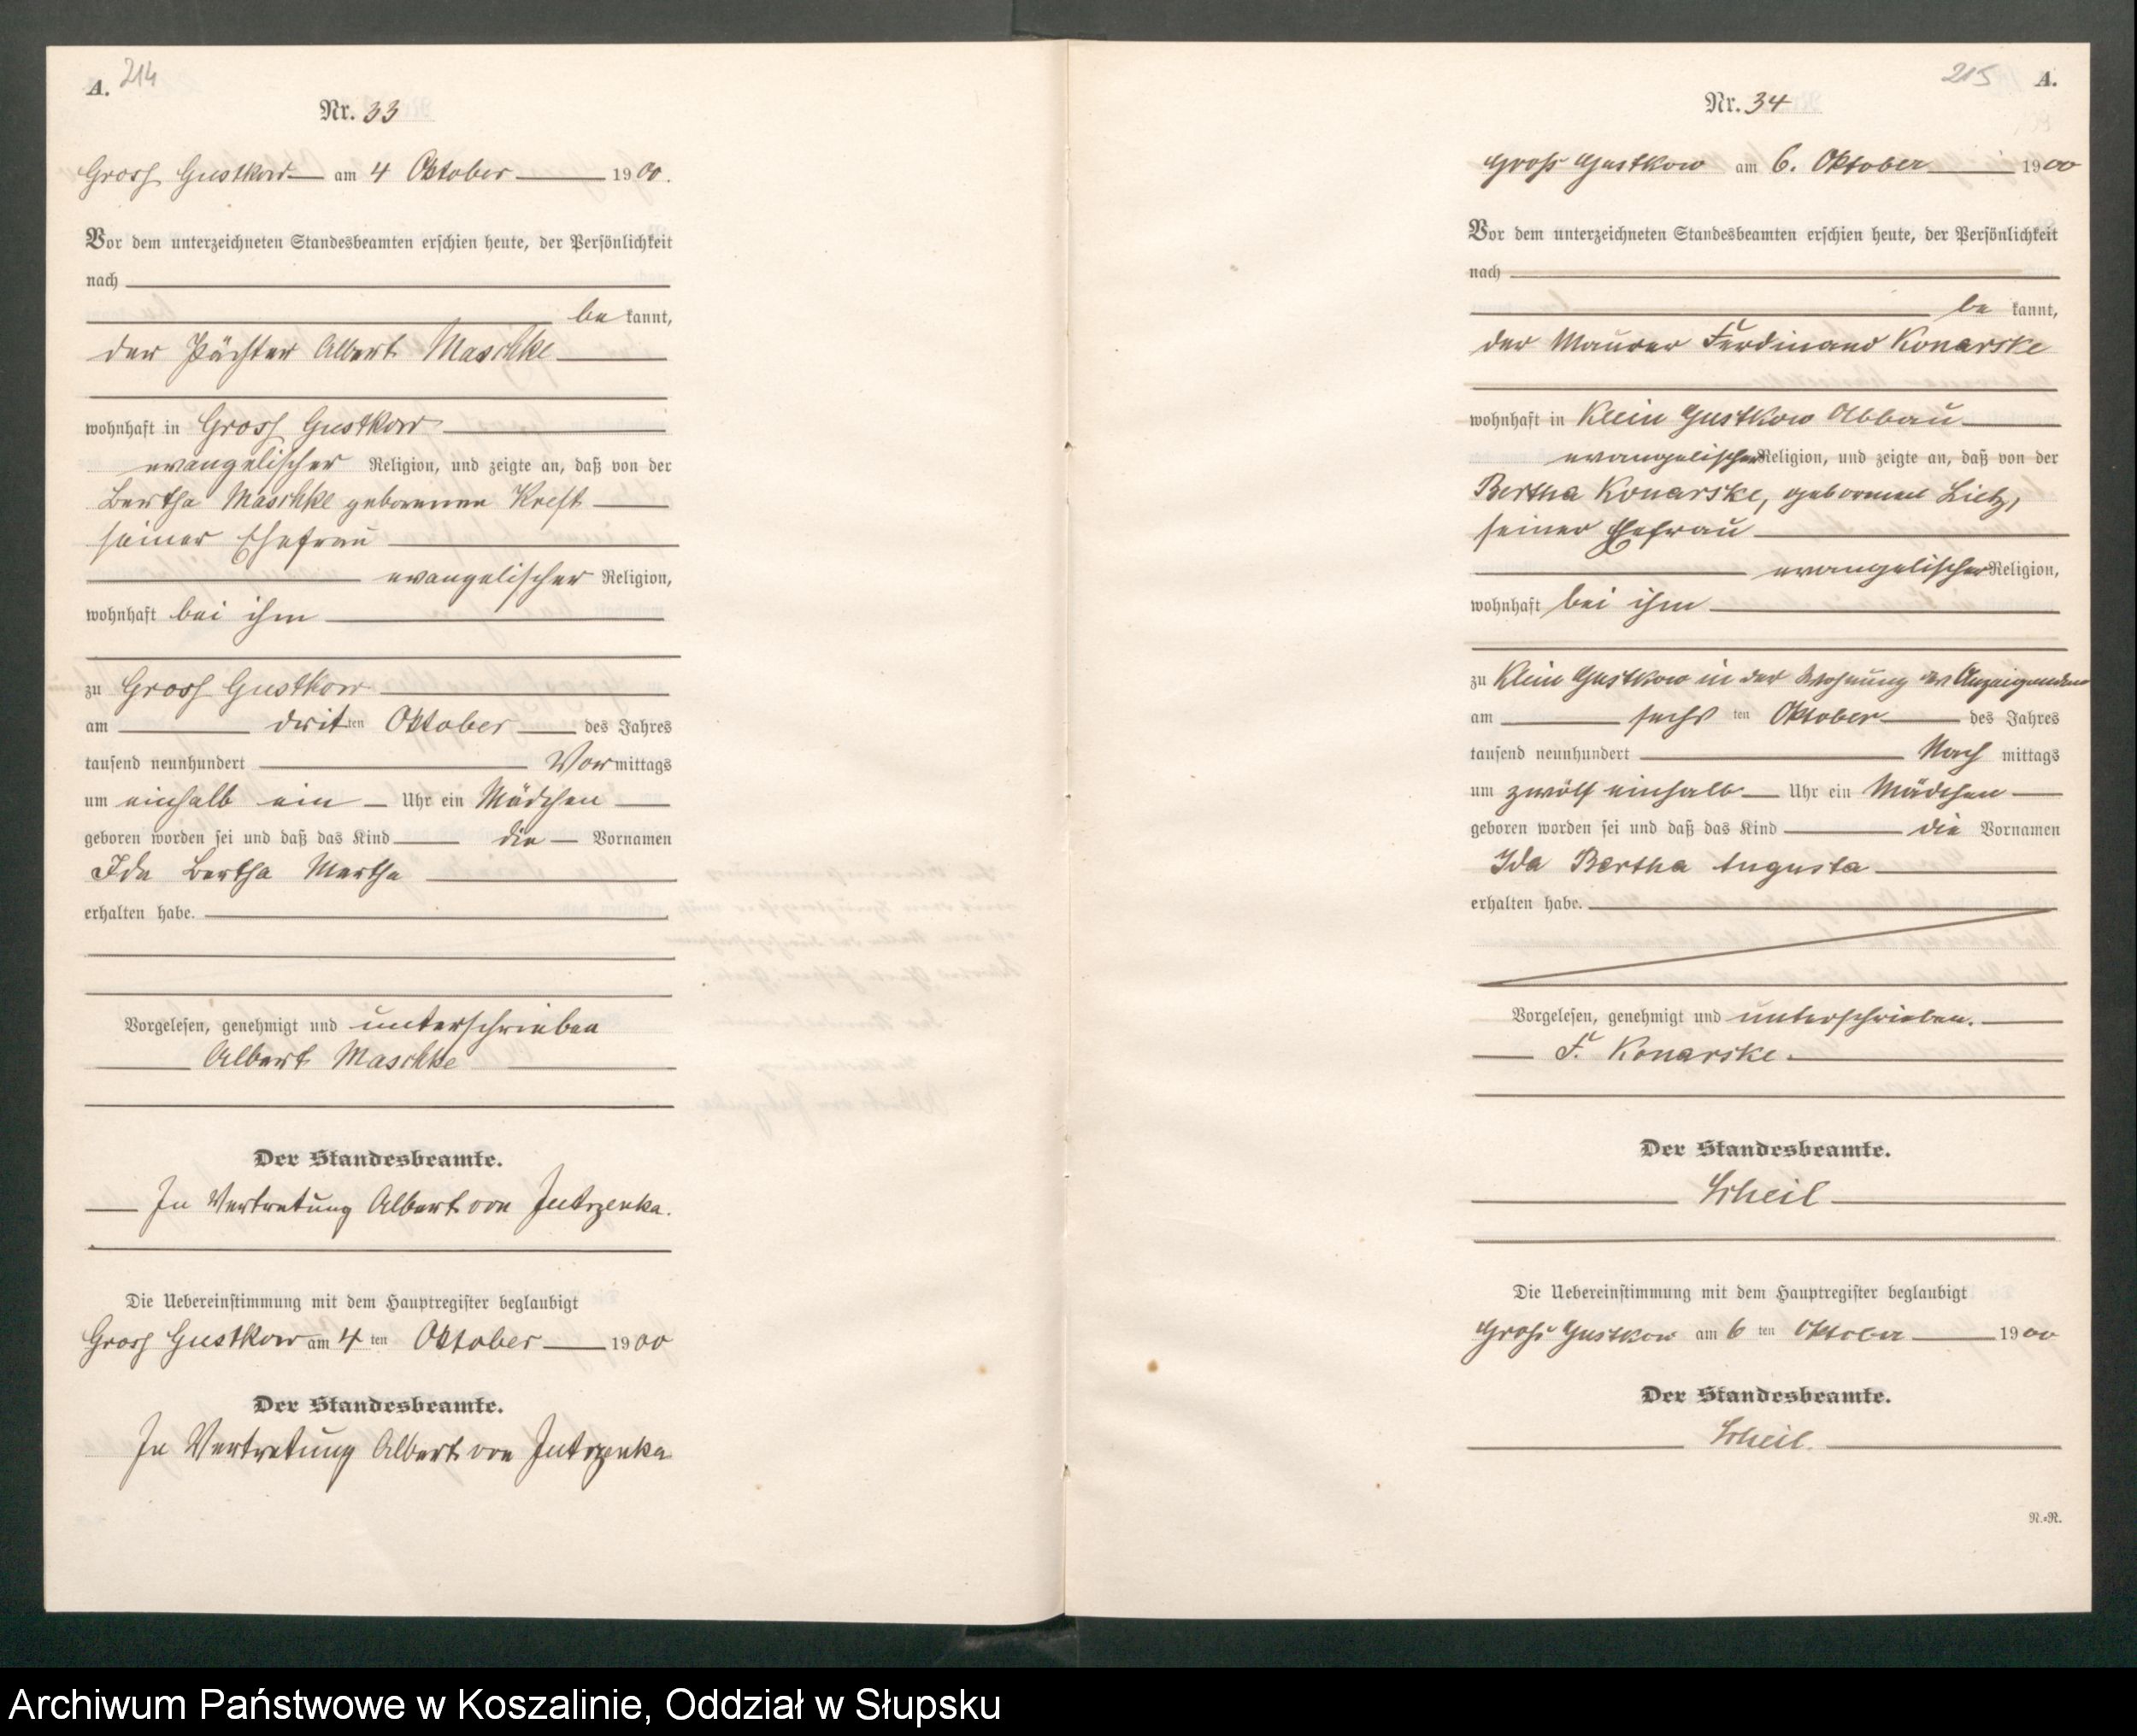 A. 214
Nr. 33
Gross Gustkow am 4 Oktober 1900.
Vor dem unterzeichneten Standesbeamten erschien heute, der Persönlichkeit
nach
be kannt,
der Pächter Albert Maschke
wohnhaft in Gross Gustkow
evangelischer Religion, und zeigte an, daß von der
Bertha Maschke geborenen Kreft
seiner Ehefrau
evangelischer Religion,
wohnhaft bei ihm
zu Gross Gustkow
am dritten Oktober des Jahres
tausend neunhundert Vormittags
um einhalb ein Uhr ein Mädchen
geboren worden sei und daß das Kind die Vornamen
Ida Bertha Martha
erhalten habe.
Vorgelesen, genehmigt und unterschrieben
Albert Maschke
Der Standesbeamte.
In Vertretung Albert von Jutrzenka.
Die Uebereinstimmung mit dem Hauptregister beglaubigt
Gross Gustkow am 4 ten Oktober 1900
Der Standesbeamte.
In Vertretung Albert von Jutrzenka
215 A.
Nr. 34
Groß Gustkow am 6. Oktober 1900
Vor dem unterzeichneten Standesbeamten erschien heute, der Persönlichkeit
nach
be kannt,
der Maurer Ferdinand Konarske
wohnhaft in Klein Gustkow Abbau
evangelischer Religion, und zeigte an, daß von der
Bertha Konarske, geborenen Lietz,
seiner Ehefrau
evangelischer Religion,
wohnhaft bei ihm
zu Klein Gustkow in der Wohnung des Anzeigenden
am sechsten Oktober des Jahres
tausend neunhundert Nach mittags
um zwölf einhalb Uhr ein Mädchen
geboren worden sei und daß das Kind die Vornamen
Ida Bertha Augusta
erhalten habe.
Vorgelesen, genehmigt und unterschrieben.
F. Konarske.
Der Standesbeamte.
Scheil
Die Uebereinstimmung mit dem Hauptregister beglaubigt
Groß Gustkow am 6 ten Oktober 1900
Der Standesbeamte.
Scheil.
N.=R.
Archiwum Państwowe w Koszalinie, Oddział w Słupsku